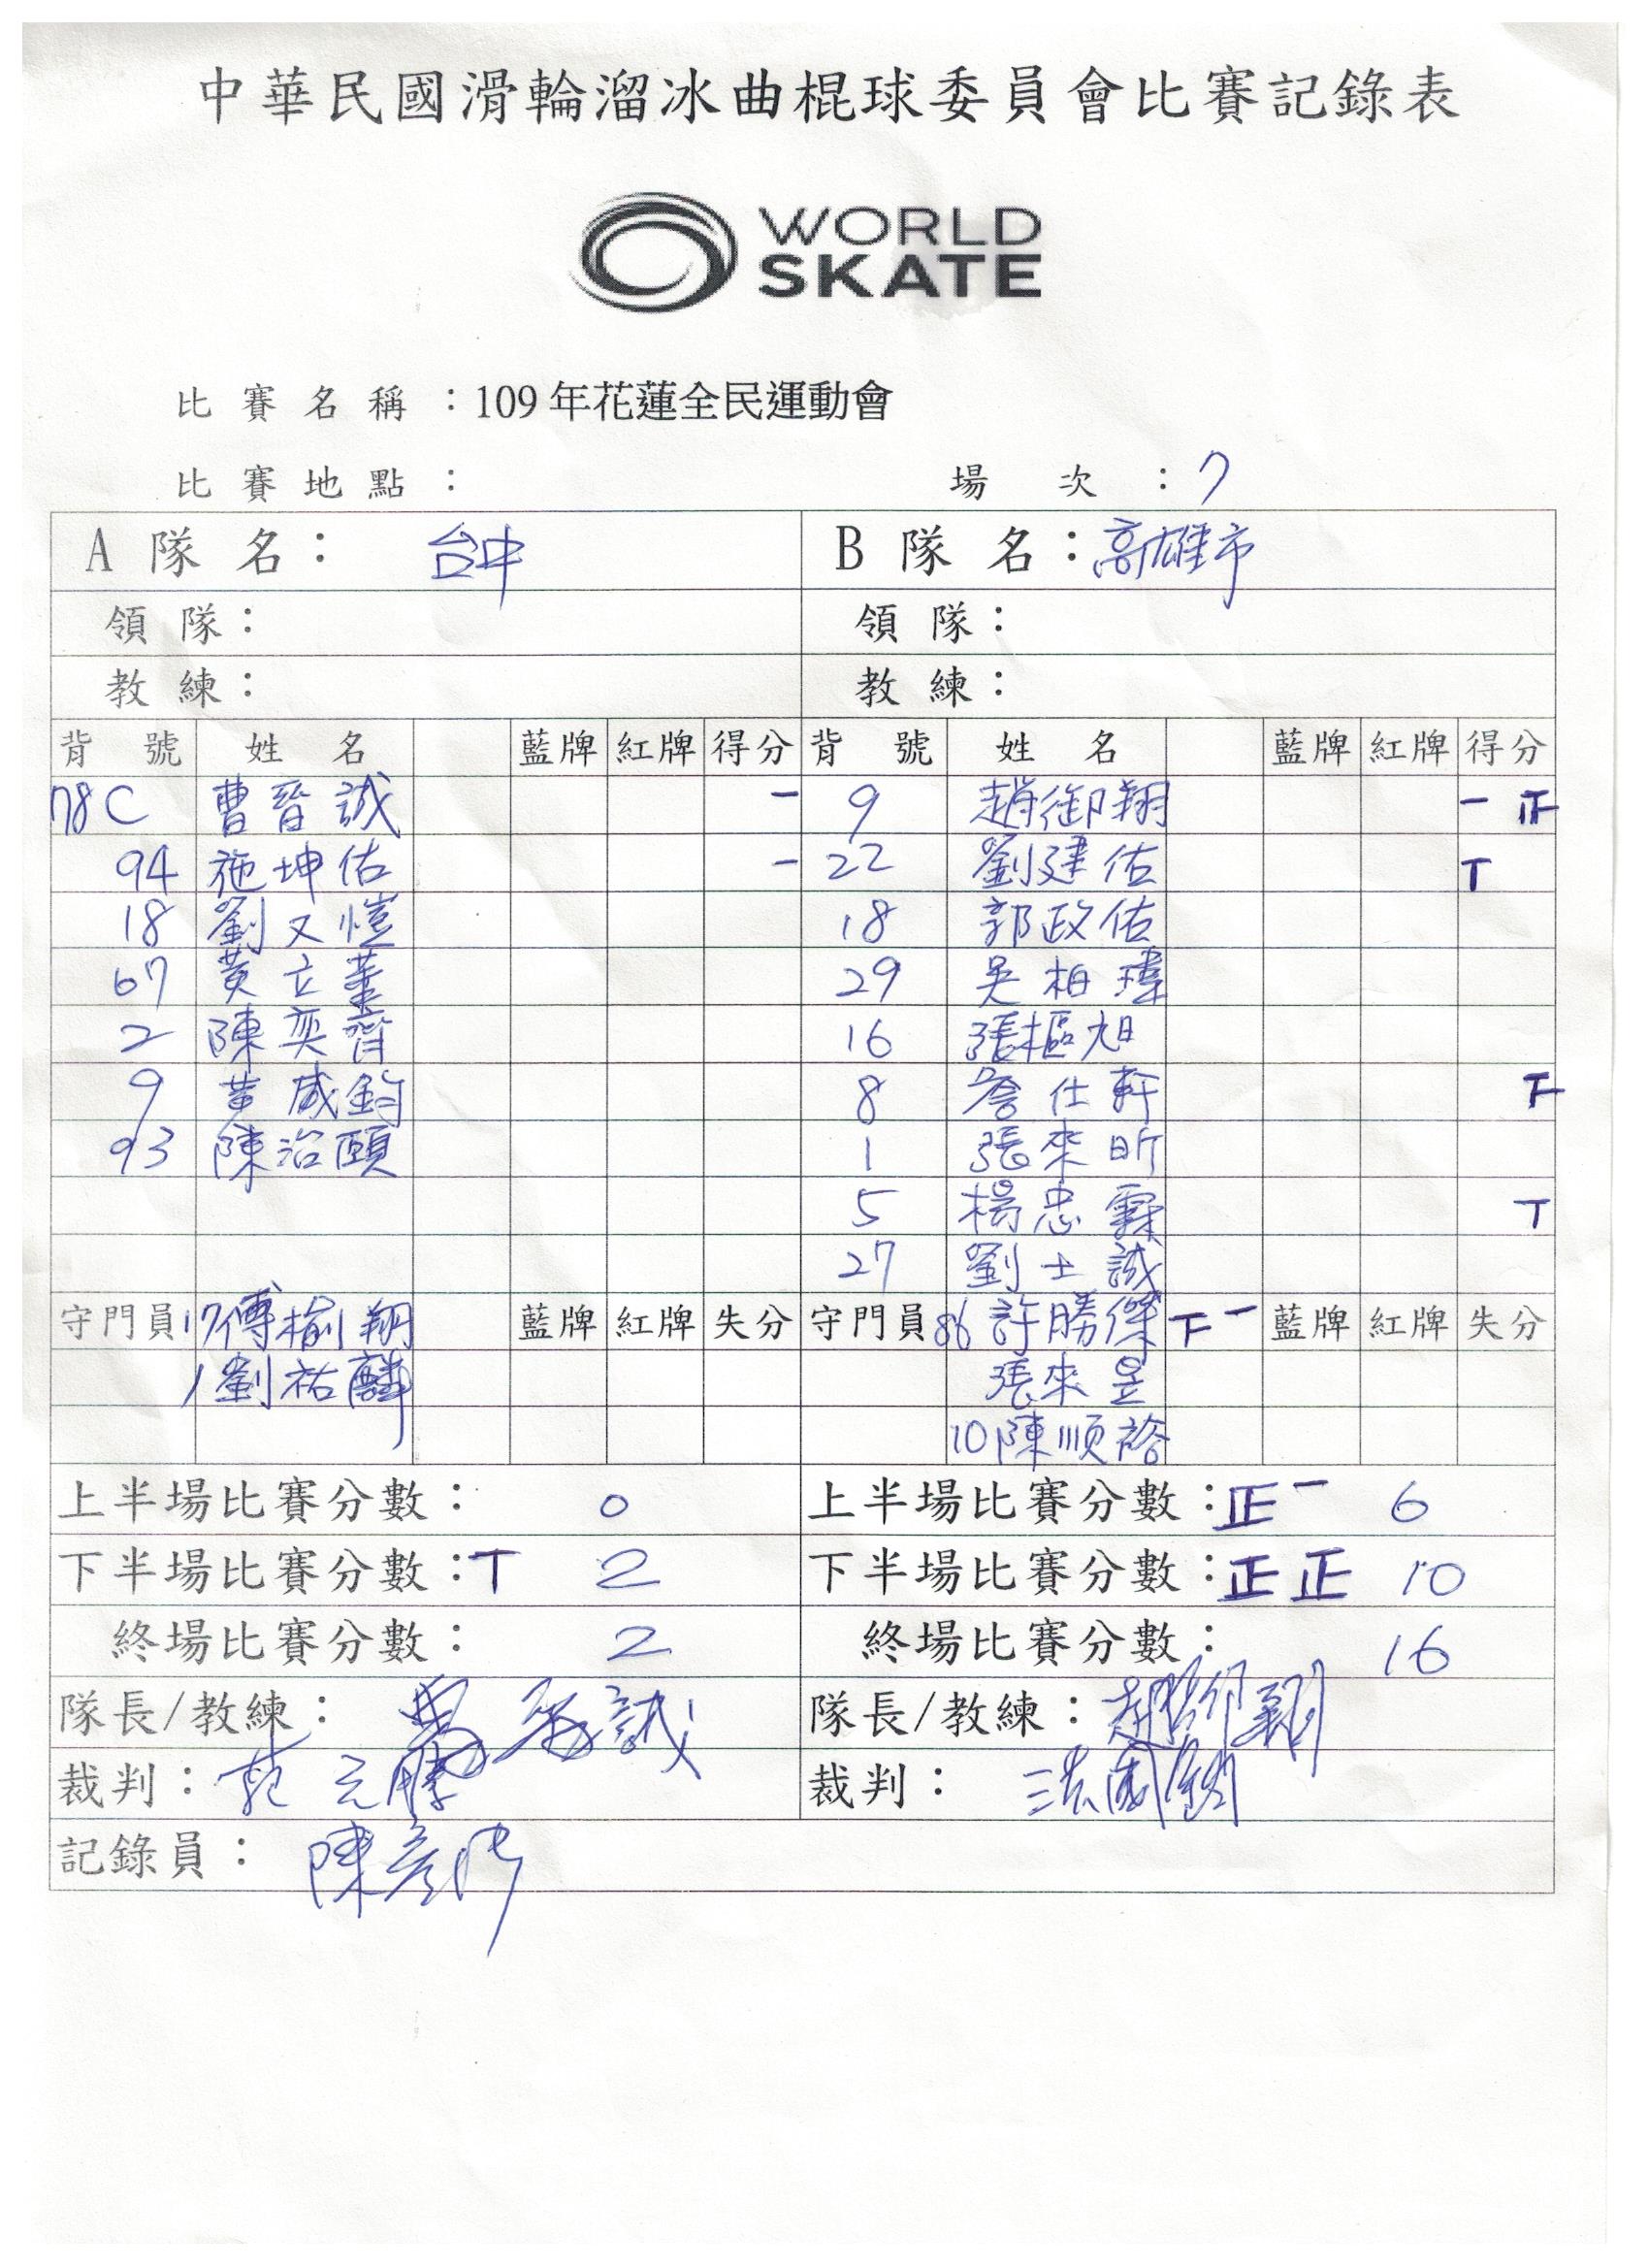 中華民國滑輪溜冰曲棍球委員會比賽記錄表
WORLD
SKATE
比賽名稱：109年花蓮全民運動會
比賽地點： 場次：7
A 隊名： 台中 B 隊名：高雄市
領隊： 領隊：
教練： 教練：
背號 姓名 藍牌 紅牌 得分 背號 姓名 藍牌 紅牌 得分
78C 曹晉誠 一 9 趙御翔 一 正
94 施坤佑 一 22 劉建佑 T
18 劉又愷 18 郭政佑
67 黃立 29 吳柏瑋
2 陳奕齊 16 張樞旭
9 黃威鈞 8 詹仕軒 下
93 陳治頤 1 張來昕
5 楊忠霖 T
27 劉士誠
守門員 17 傅榆翔 藍牌 紅牌 失分 守門員 86 許勝傑 下一 藍牌 紅牌 失分
1 劉祐麟 張來昱
10 陳順裕
上半場比賽分數： 0 上半場比賽分數：正一 6
下半場比賽分數：T 2 下半場比賽分數：正正 10
終場比賽分數： 2 終場比賽分數： 16
隊長/教練： 曹晉誠 隊長/教練：趙御翔
裁判：范元勝 裁判：
記錄員： 陳彥